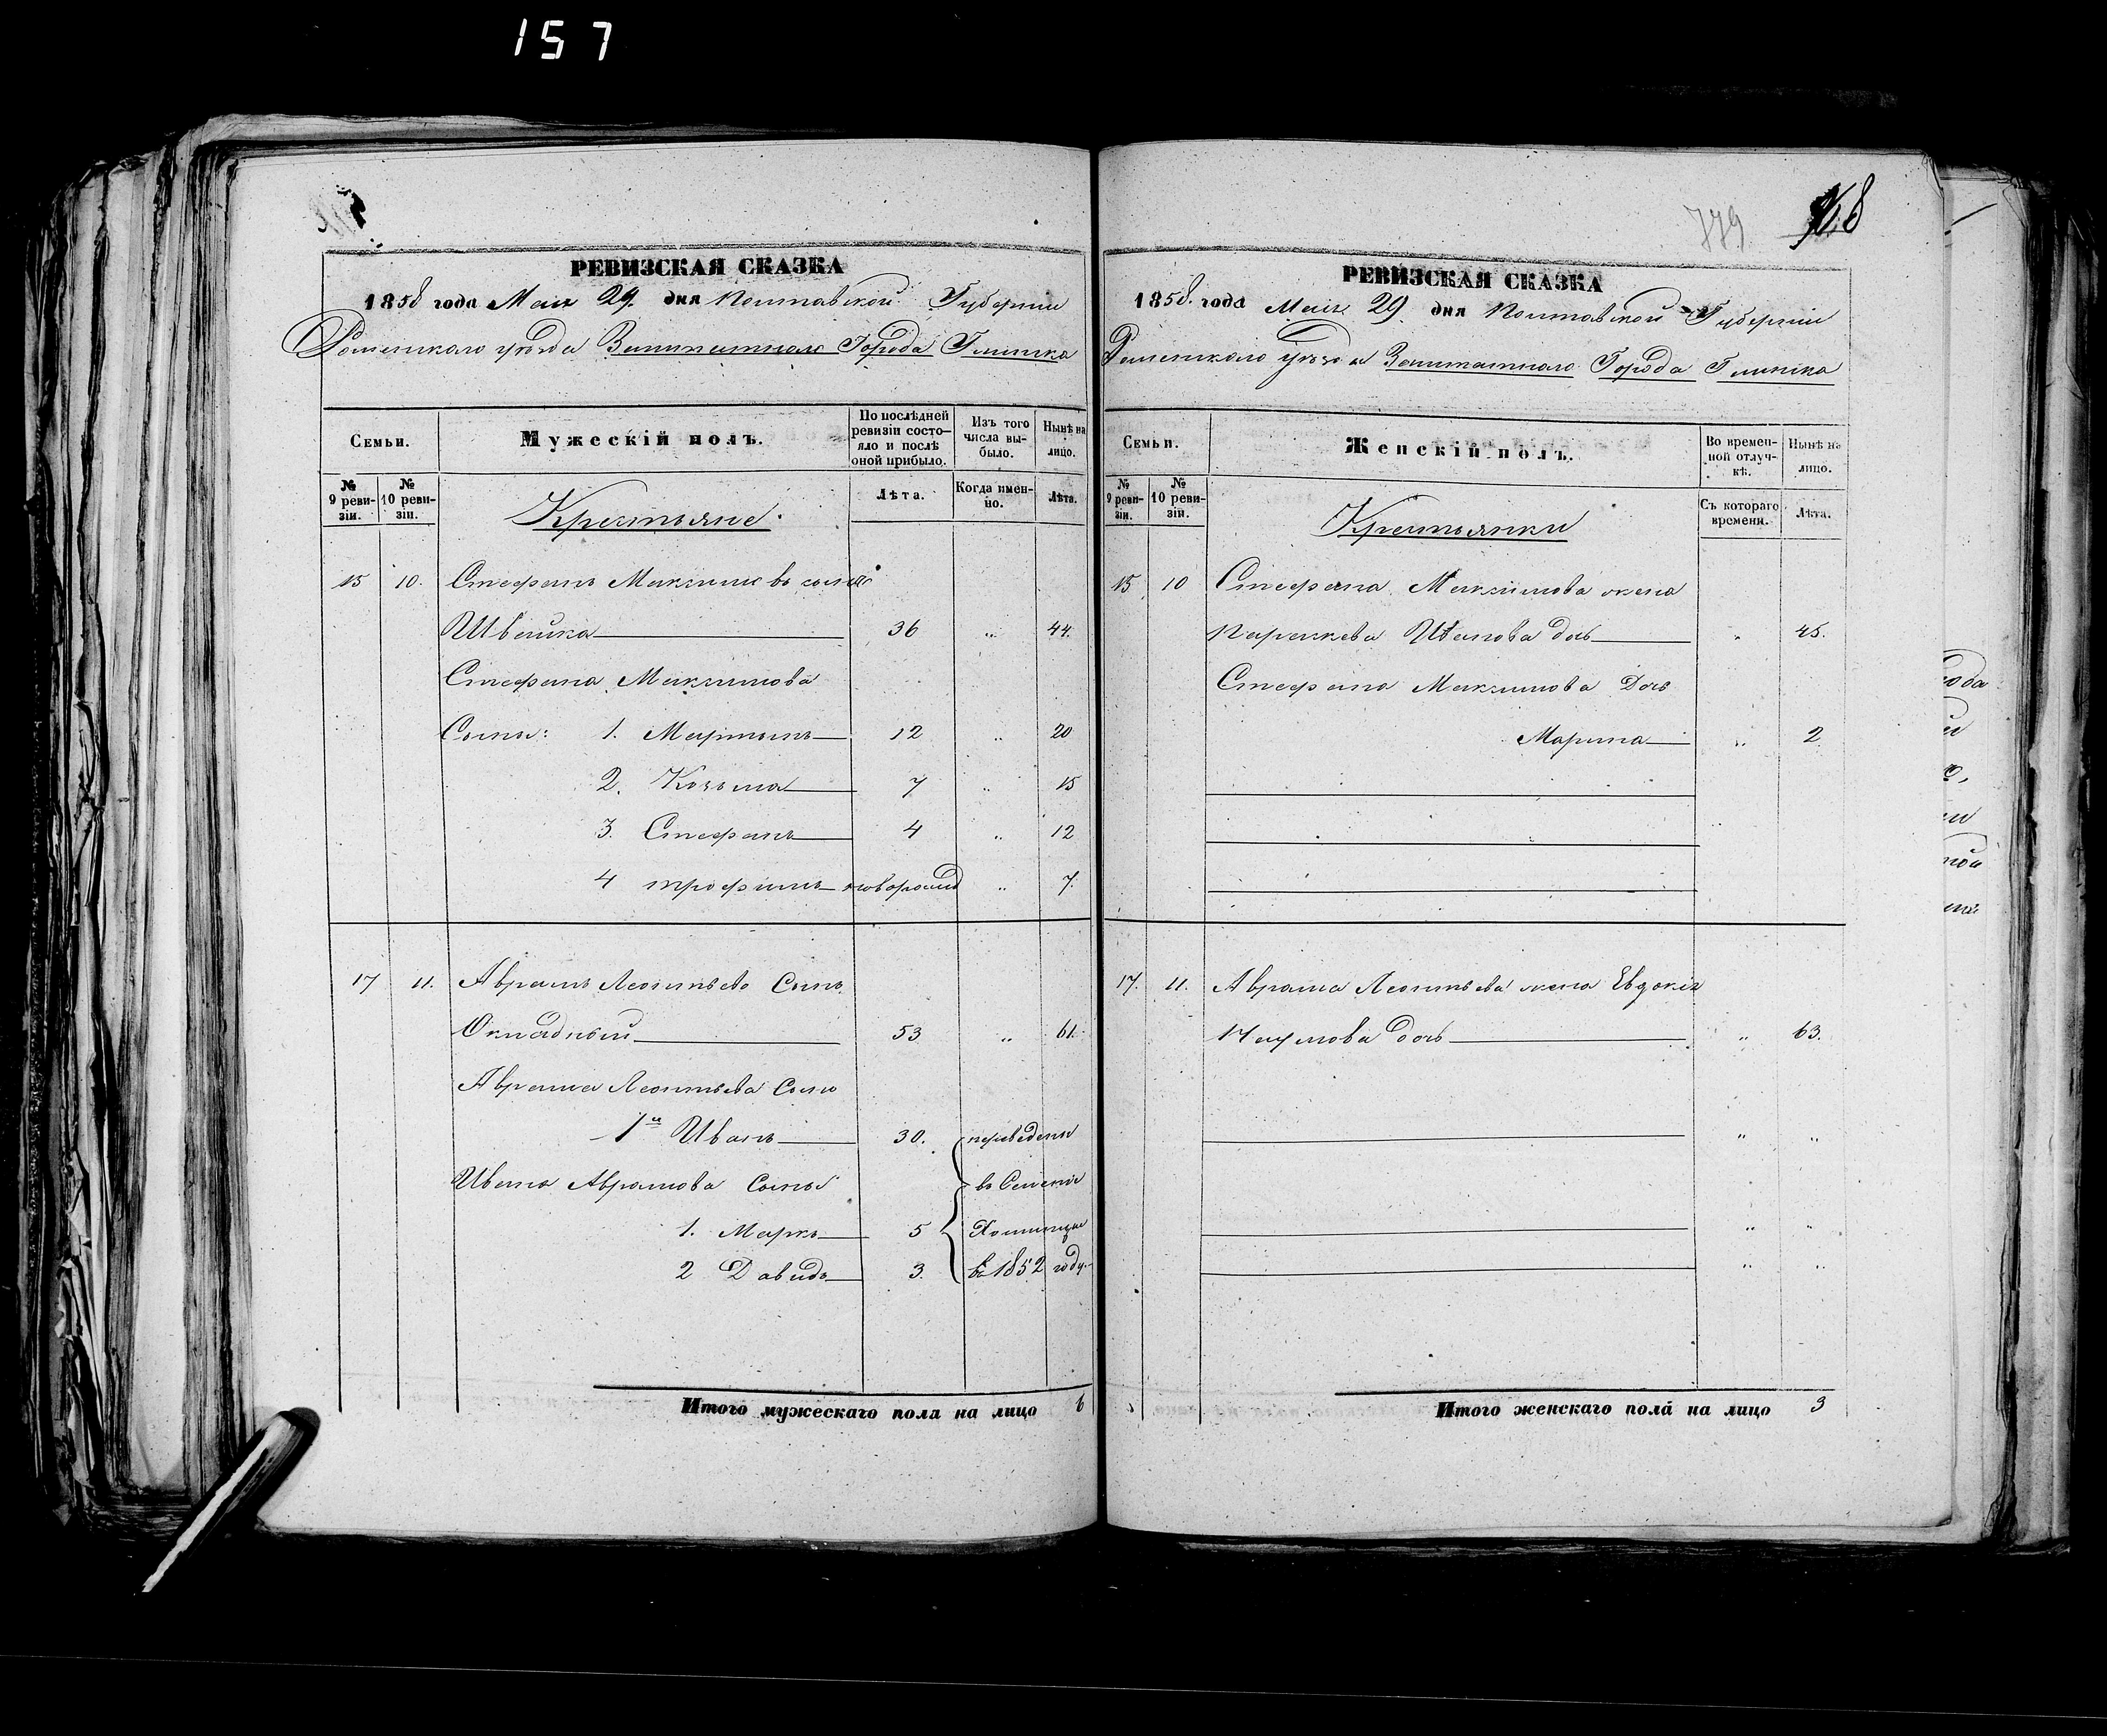 157
РЕВИЗСКАЯ СКАЗКА
1858 года Мая 29 дня Полтавской Губерніи
Роменскаго уѣзда Заштатнаго Города Глинска
Семьи.
Мужескій полъ.
По послѣдней ревизіи состояло и послѣ оной прибыло.
Изъ того числа выбыло.
Нынѣ на лицо.
№ 9 ревизіи.
№ 10 ревизіи.
Лѣта.
Когда именно.
Лѣта.
Крестьяне
15 10. Стефанъ Максимовъ сынъ
Швейка 36 „ 44.
Стефана Максимова
Сыны: 1. Мартынъ 12 „ 20
2. Козьма 7 „ 15
3. Стефанъ 4 „ 12
4 трофимъ новорожд „ 7.
17 11. Аврамъ Леонтьевъ Сынъ
Окладный 53 „ 61.
Аврама Леонтьева Сынъ
1й Иванъ 30. переведены
Ивана Аврамова Сыны въ Селеніе
1. Марко 5
2 Давидъ 3. въ 1852 году.
Итого мужескаго пола на лицо 6
779
РЕВИЗСКАЯ СКАЗКА
1858. года Мая 29 дня Полтавской Губерніи
Роменскаго уѣзда Заштатнаго Города Глинска
Семьи.
Женскій полъ.
Во временной отлучкѣ.
Нынѣ на лицо.
№ 9 ревизіи.
№ 10 ревизіи.
Съ котораго времени.
Лѣта.
Крестьянки
15 10 Стефана Максимова жена
Параскева Иванова дочь „ 45.
Стефана Максимова Дочь
Марина „ 2
17. 11. Аврама Леонтьева жена Евдокія
Наумова дочь „ 63.
„ „
„ „
„ „
Итого женскаго пола на лицо 3